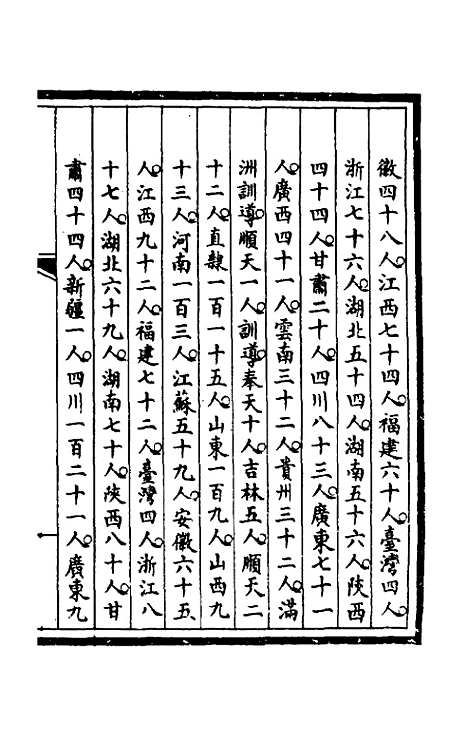 徽四十八人江西七十四人福建六十人臺灣四人
浙江七十六人湖北五十四人湖南五十六人陝西
四十四人甘肅二十人四川八十三人廣東七十一
人廣西四十一人雲南三十二人貴州三十二人滿
洲訓導順天一人訓導奉天十人吉林五人順天二
十二人直隸一百一十五人山東一百九人山西九
十三人河南一百三人江蘇五十九人安徽六十五
人江西九十二人福建七十二人臺灣四人浙江八
十七人湖北六十九人湖南七十人陝西八十人甘
肅四十四人新疆一人四川一百二十一人廣東九